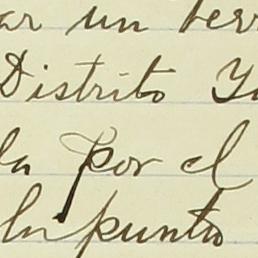 ar un terr
Distrito Ya
la por el
la punta